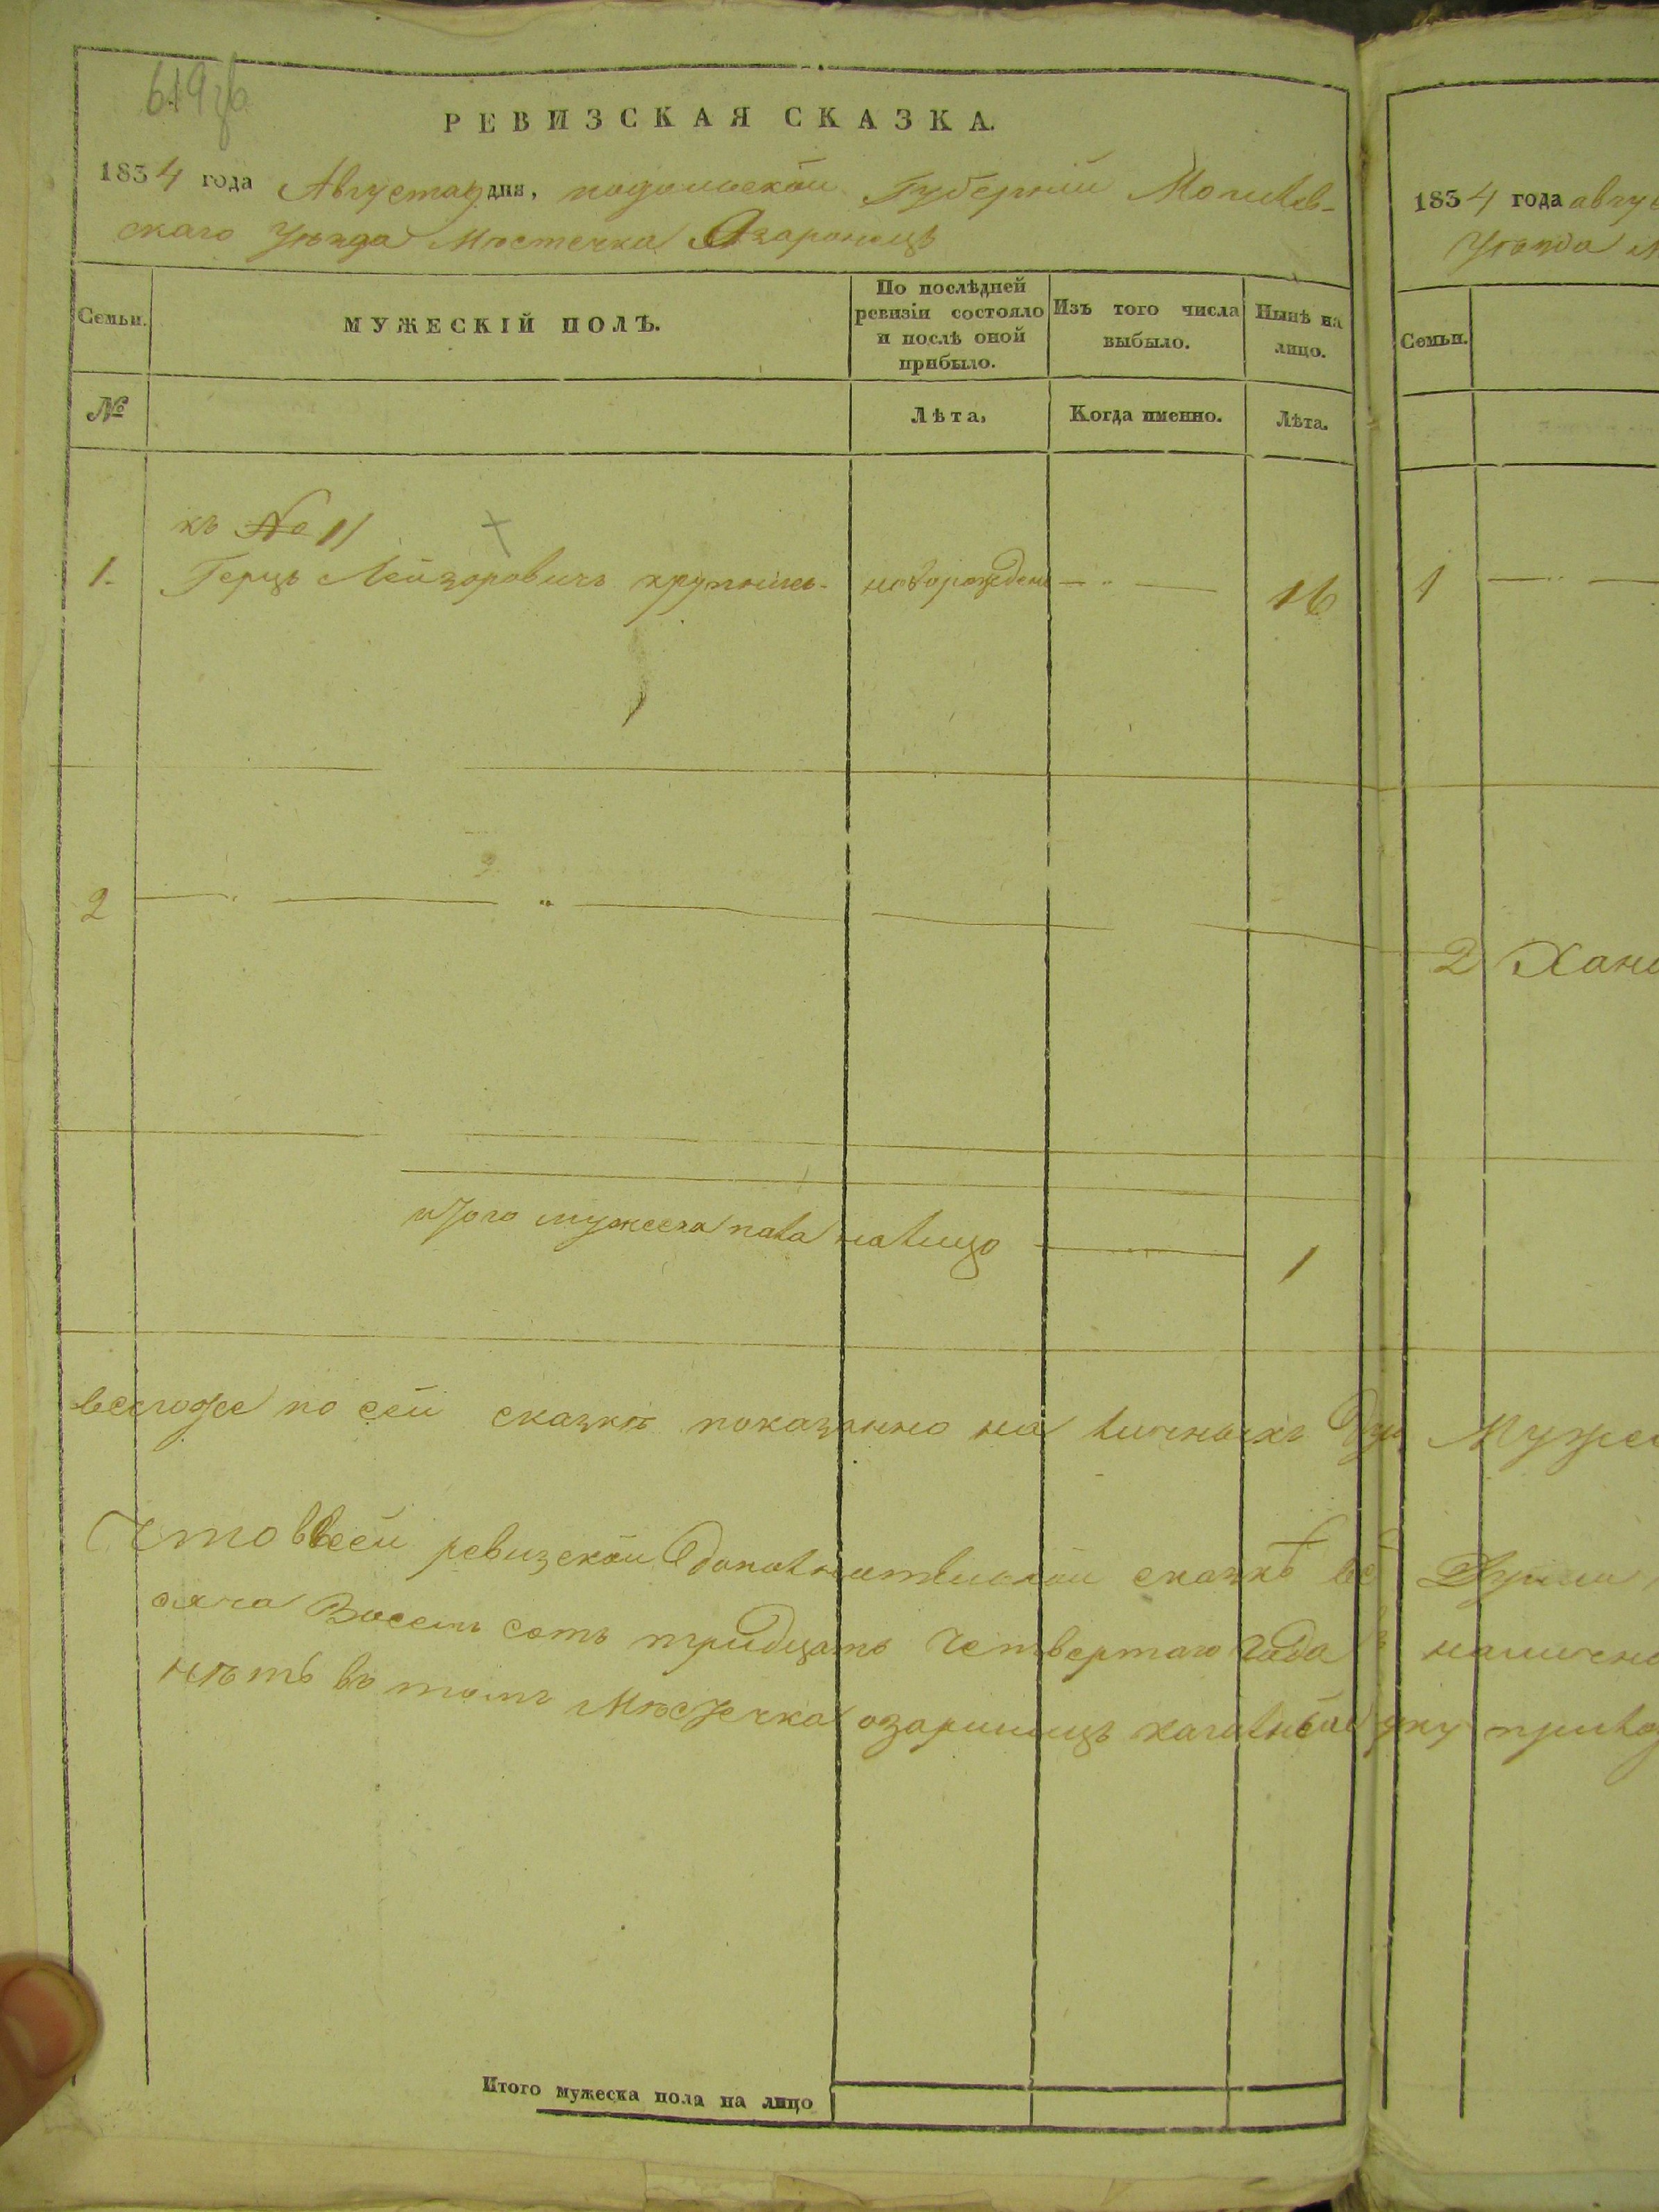 619
РЕВИЗСКАЯ СКАЗКА.
1834 года Августа 9 дня, подольской Губерний Могилев-
скаго Уѣзда Мѣстечка Азаронецъ
Семьи.
МУЖЕСКІЙ ПОЛЪ.
По послѣдней ревизіи состояло и послѣ оной прибыло.
Изъ того числа выбыло.
Нынѣ на лицо.
№
Лѣта,
Когда именно.
Лѣта.
къ № 11
1. Герцъ Лейзоровичъ новорожденъ 16
1
2
итого мужеска пола налицо 1
всегоже по сей сказкѣ показанно на личныхъ
Что ввсей ревизской сказкѣ
сяча Восемъ сотъ тридцать Четвертаго Года
нѣтъ въ томъ Мѣстечка озаринецъ
Итого мужеска пола на лицо
1834 года авгу
Уѣзда
Семьи.
1
2 Хана
Мужес